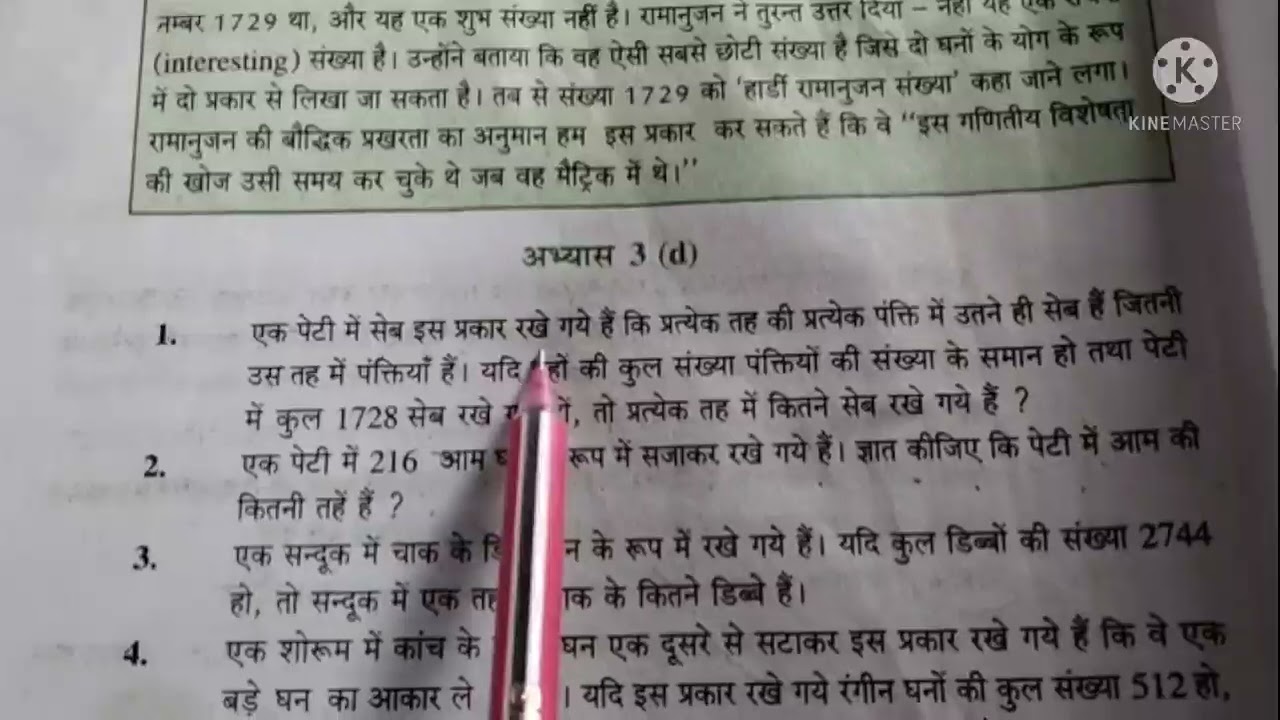 नम्बर 1729 था, और यह एक शुभ संख्या नहीं है। रामानुजन ने तुरन्त उत्तर दिया – नहीं यह एक
(interesting) संख्या है। उन्होंने बताया कि वह ऐसी सबसे छोटी संख्या है जिसे दो घनों के योग के रूप
में दो प्रकार से लिखा जा सकता है। तब से संख्या 1729 को 'हार्डी रामानुजन संख्या' कहा जाने लगा।
रामानुजन की बौद्धिक प्रखरता का अनुमान हम इस प्रकार कर सकते हैं कि वे "इस गणितीय विशेषता
की खोज उसी समय कर चुके थे जब वह मैट्रिक में थे।"
K
KINEMASTER
अभ्यास 3 (d)
1. एक पेटी में सेब इस प्रकार रखे गये हैं कि प्रत्येक तह की प्रत्येक पंक्ति में उतने ही सेब हैं जितनी
उस तह में पंक्तियाँ हैं। यदि की कुल संख्या पंक्तियों की संख्या के समान हो तथा पेटी
में कुल 1728 सेब रखे तो प्रत्येक तह में कितने सेब रखे गये हैं ?
2. एक पेटी में 216 आम रूप में सजाकर रखे गये हैं। ज्ञात कीजिए कि पेटी में आम की
कितनी तहें हैं ?
3. एक सन्दूक में चाक के के रूप में रखे गये हैं। यदि कुल डिब्बों की संख्या 2744
हो, तो सन्दूक में एक के कितने डिब्बे हैं।
4. एक शोरूम में कांच के घन एक दूसरे से सटाकर इस प्रकार रखे गये हैं कि वे एक
बड़े घन का आकार ले । यदि इस प्रकार रखे गये रंगीन घनों की कुल संख्या 512 हो,